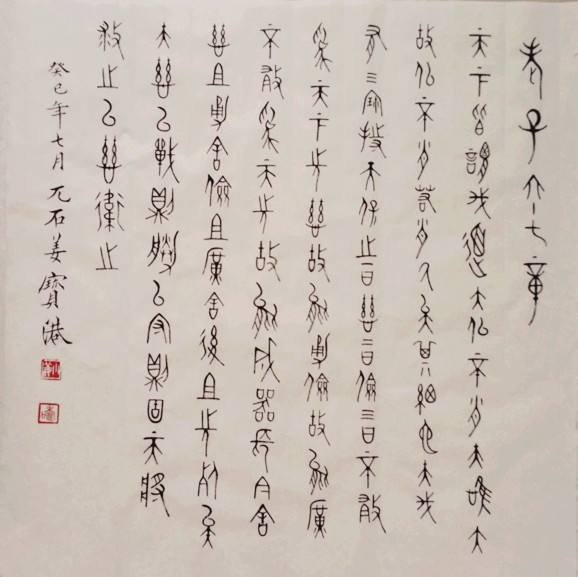 老子六十七章
天下皆謂我道大似不肖夫唯大
故似不肖若肖久矣其細也夫我
有三寶持而保之一曰慈二曰儉三曰不敢
為天下先慈故能勇儉故能廣
不敢為天下先故能成器長今舍
慈且勇舍儉且廣舍後且先死矣
夫慈以戰則勝以守則固天將
救之以慈衛之
癸巳年七月 兀石姜寶港